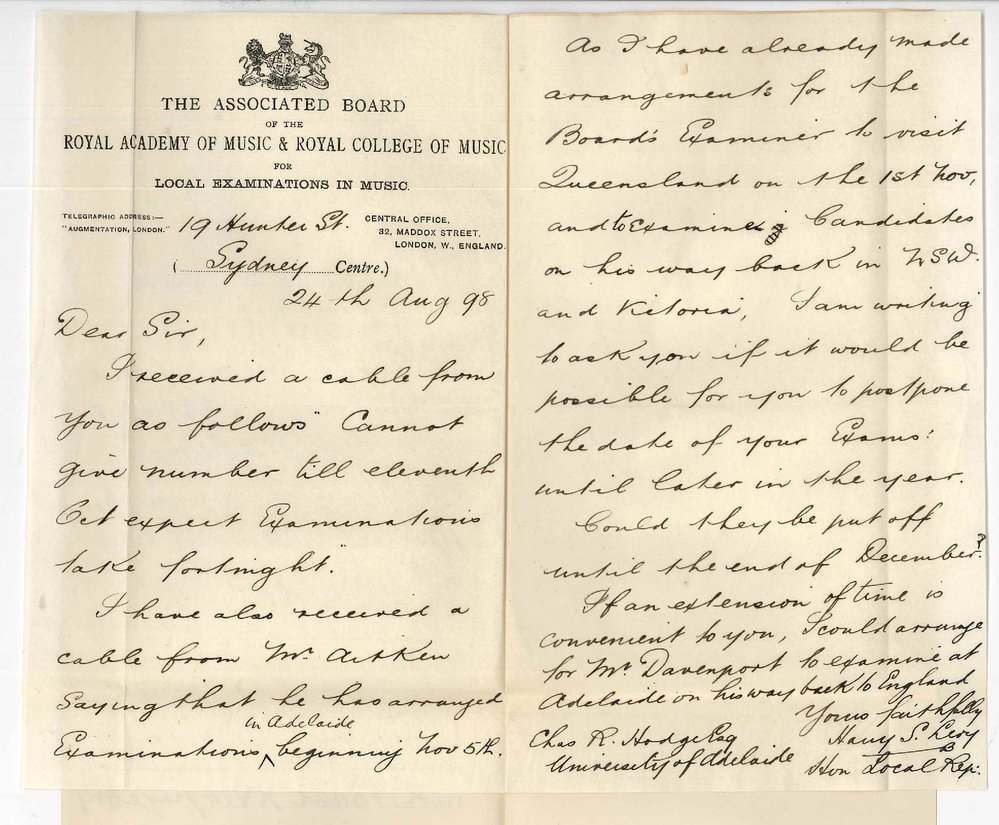 THE ASSOCIATED BOARD
OF THE
ROYAL ACADEMY OF MUSIC & ROYAL COLLEGE OF MUSIC
FOR
LOCAL EXAMINATIONS IN MUSIC.
TELEGRAPHIC ADDRESS:—
"AUGMENTATION, LONDON."
19 Hunter St.
CENTRAL OFFICE,
32, MADDOX STREET,
LONDON, W., ENGLAND.
( Sydney Centre.)
24th Aug 98
Dear Sir,
I received a cable from
you as follows "Cannot
give number till eleventh
Oct expect Examinations
take fortnight."
I have also received a
cable from Mr. Aitken
saying that he has arranged
in Adelaide
Examinations ^ beginning Nov 5th.
As I have already made
arrangements for the
Board's Examiner to visit
Queensland on the 1st Nov,
and to Examine Candidates
on his way back in N.S.W.
and Victoria, I am writing
to ask you if it would be
possible for you to postpone
the date of your Exams:
until later in the year.
Could they be put off
until the end of December?
If an extension of time is
convenient to you, I could arrange
for Mr. Davenport to examine at
Adelaide on his way back to England
Yours faithfully
Harry S. Levy
Hon Local Rep:
Chas R. Hodge Esq
University of Adelaide